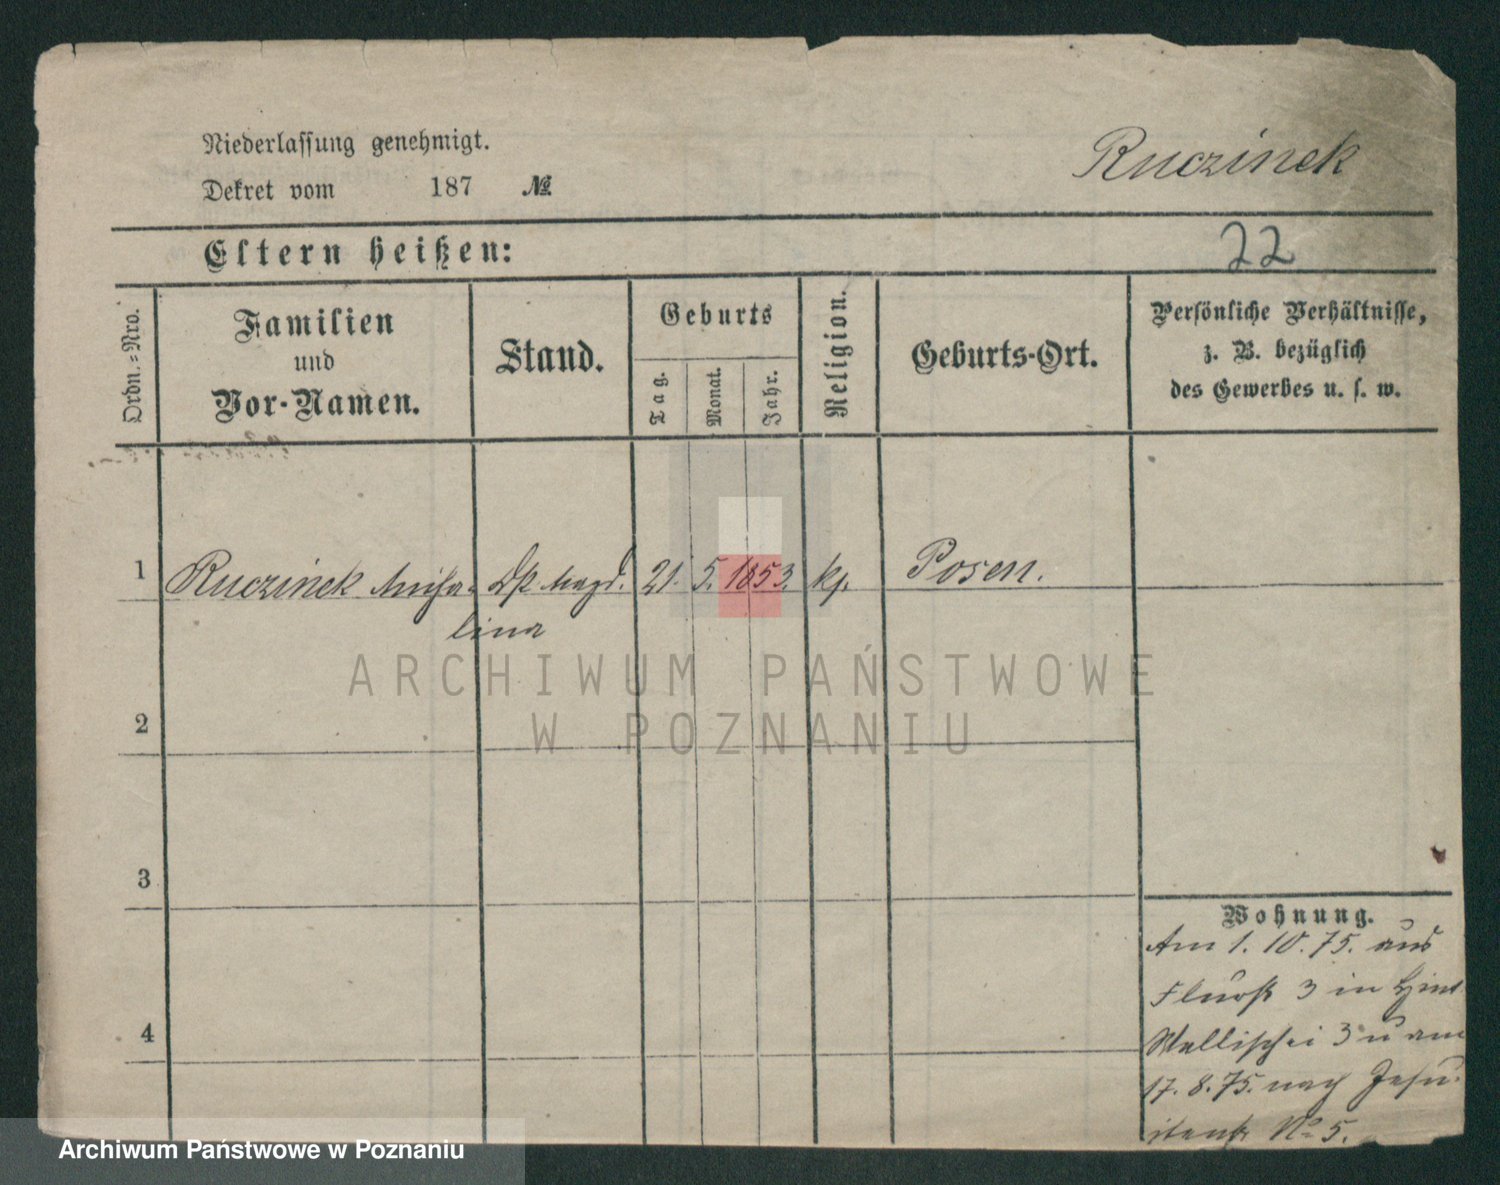 Niederlassung genehmigt.
Dekret vom 187 №
Ruczinek
Eltern heißen:
22
Ordn.-Nro.
Familien
und
Vor-Namen.
Stand.
Geburts
Tag.
Monat.
Jahr.
Religion.
Geburts-Ort.
Persönliche Verhältnisse,
z. B. bezüglich
des Gewerbes u. s. w.
1 Ruczinek Micha- Magd. 21. 5. 1853. kp. Posen.
lina
2
3
4
Wohnung.
Am 1. 10. 75. aus
3 in Hint
Wallischei 3 u am
17. 8. 75. nach Jesu
itenstr № 5.
ARCHIWUM PAŃSTWOWE
W POZNANIU
Archiwum Państwowe w Poznaniu